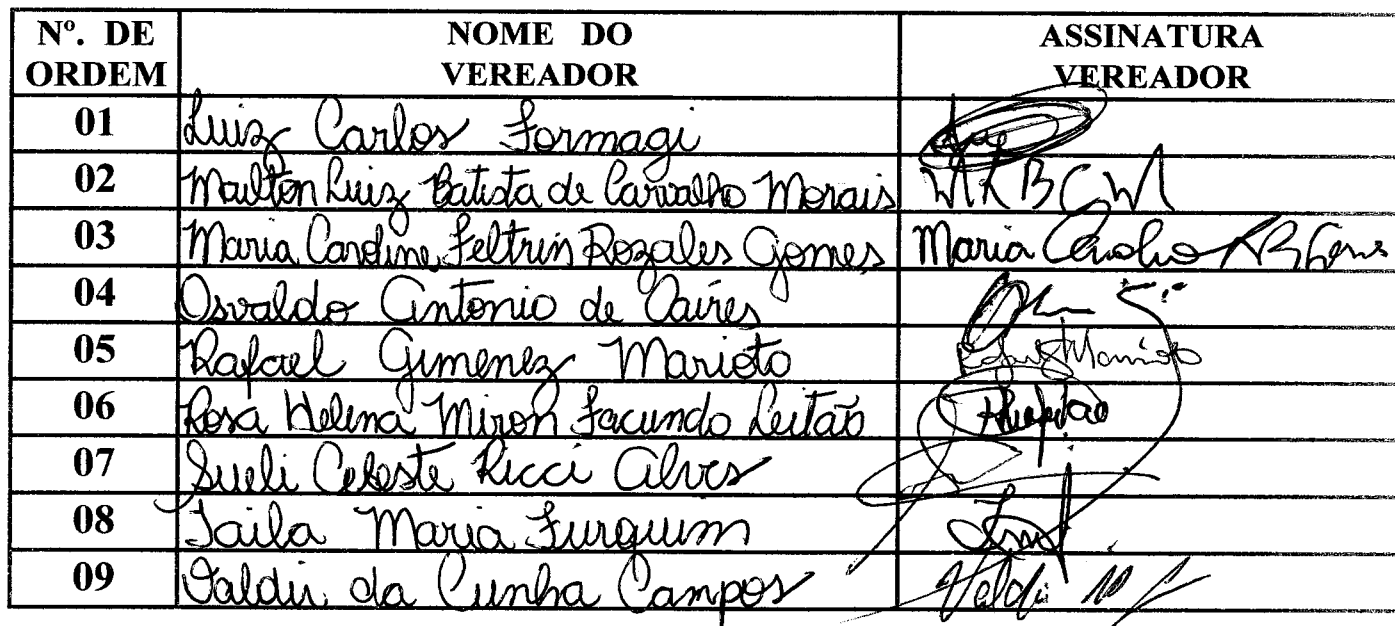 Nº. DE ORDEM NOME DO VEREADOR ASSINATURA VEREADOR
01 Luiz Carlos Formagi
02 Mailton Luiz Batista de Carvalho Morais MLBCM
03 Maria Caroline Feltrin Rozales Gomes Maria
04 Osvaldo Antonio de Caires
05 Rafael Gimenez Marioto
06 Rosa Helena Miron Facundo Leitão
07 Sueli Celeste Ricci Alves
08 Taila Maria Furquim
09 Valdir da Cunha Campos